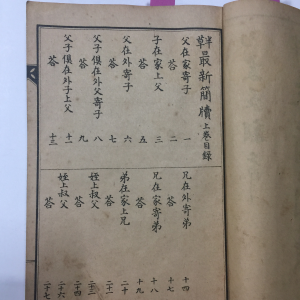 草最新簡牘上卷目錄
父在家寄子 一
答 二
子在家上父 三
答 五
父在外寄子 六
答 七
父子俱在外父寄子 八
答 九
父子俱在外子上父 十一
答 十三
兄在外寄弟 十四
答 十七
兄在家寄弟 十八
答 十九
弟在家上兄 二十
答
姪上叔父
答 二十四
姪上叔父 二十六
答 二十七